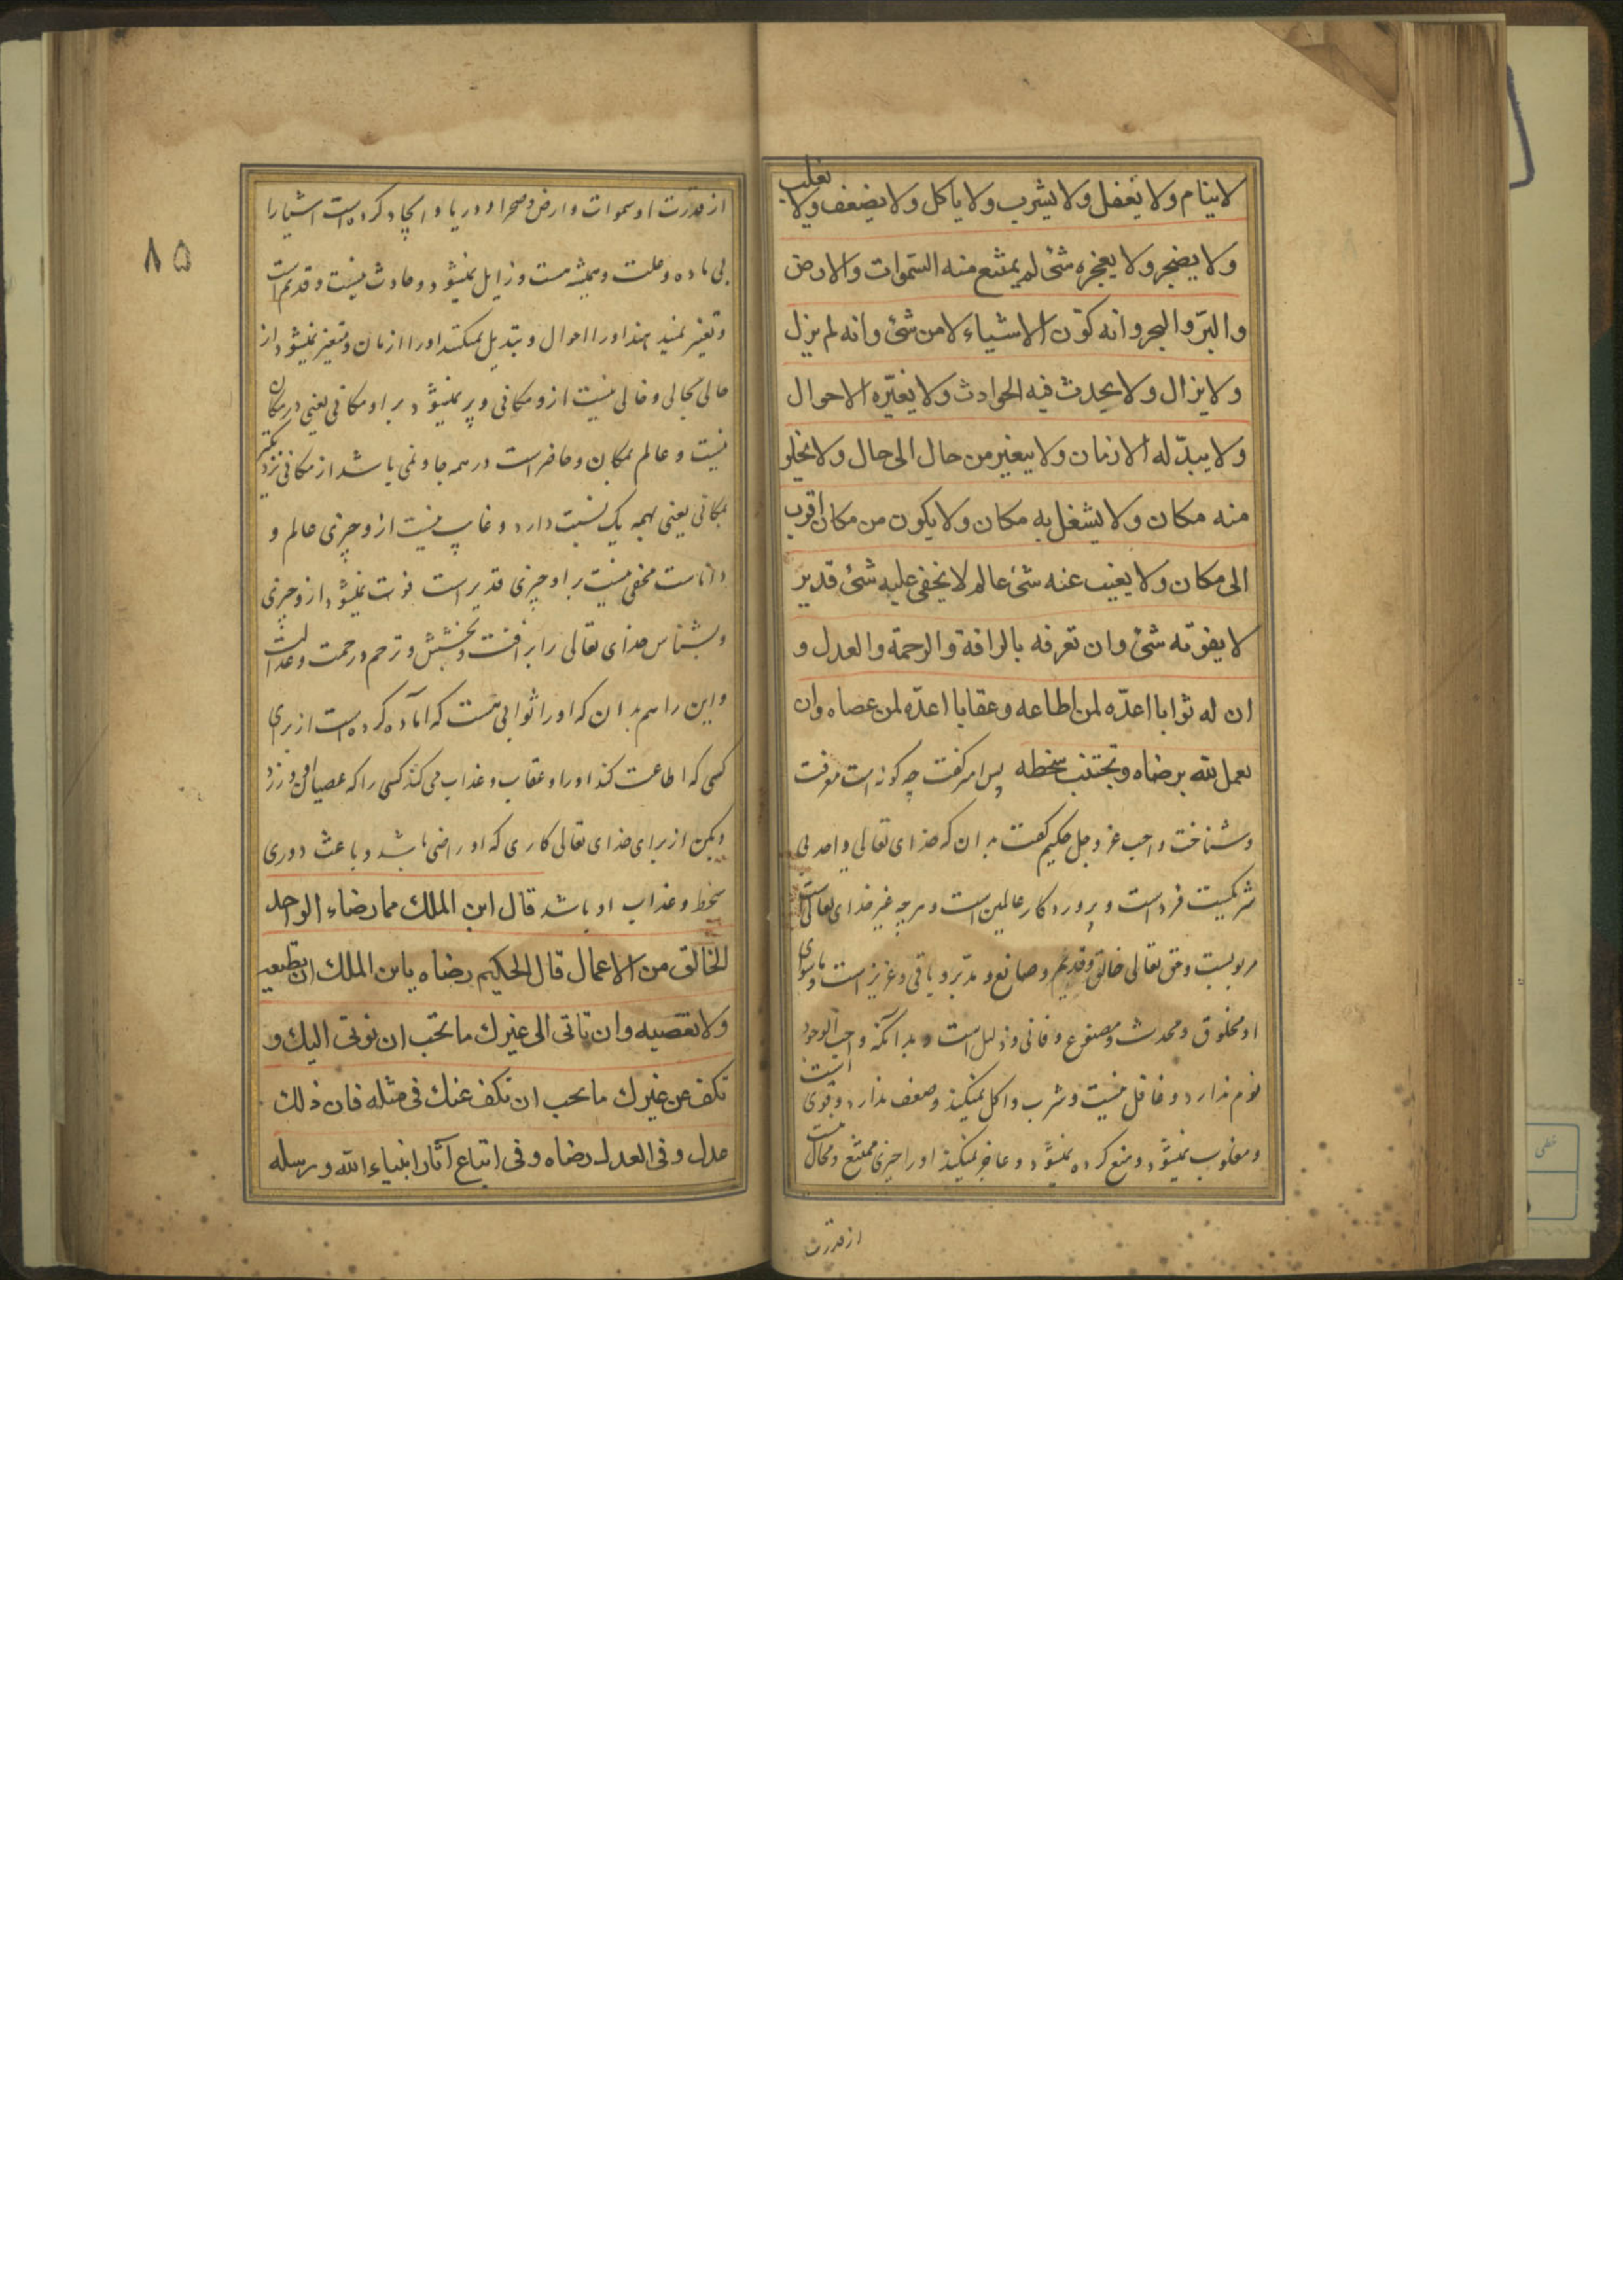 لا ينام ولا يغفل ولا يشرب ولا ياكل ولا يضعف ولا يغلب
ولا يضجر ولا يعجزه شئ لم يمتنع منه السموات والارض
والبرّ والبحر وانه كوّن الاشياء لا من شئ وانه لم يزل
ولا يزال ولا يحدث فيه الحوادث ولا يغيّره الاحوال
ولا يبدّله الازمان ولا يتغير من حال الى حال ولا يخلو
منه مكان ولا يشغل به مكان ولا يكون من مكان اقرب
الى مكان ولا يغيب عنه شئ عالم لا يخفى عليه شئ قدير
لا يفوته شئ وان تعرفه بالرافة والرحمة والعدل و
ان له ثوابا اعدّه لمن اطاعه وعقابا اعدّه لمن عصاه وان
تعمل لله برضاه وتجتنب سخطه پس امر كفت چه كونه است معرفت
وشناخت واجب عز وجل حكيم كفت بدان كه خداى تعالى واحد بى
شريكست فرد است و پروردكار عالمين است وهرچه غير خداى تعالى است
مربوبست وحق تعالى خالق وقديم وصانع ومدبّر وباقى وعزيز است وماسواى
او مخلوق ومحدث ومصنوع وفانى وذليل است و بدانكه واجب الوجود
نوم ندارد وغافل نيست وشرب واكل نميكند وضعف ندارد وقوى است
ومغلوب نميشود ومنع كرده نميشود وعاجز نميكند او را چيزى ممتنع ومحال نيست
از قدرت
۸۵
از قدرت او سموات وارض وصحرا ودريا و ايجاد كرده است اشيا را
بى ماده وعلت وهميشه هست وزايل نميشود وحادث نيست وقديم است
وتغير نميدهند او را احوال وتبديل نميكنند او را ازمان ومتغير نميشود از
حالى بحالى وخالى نيست از و مكانى وپر نميشود بر او مكانى يعنى در مكان
نيست وعالم بمكان وحاضر است در همه جا ونمى باشد از مكانى نزديكتر
بمكانى يعنى بهمه يك نسبت دارد وغايب نيست از و چيزى عالم و
داناست مخفى نيست بر او چيزى قدير است فوت نميشود از و چيزى
وبشناس خداى تعالى را برافت وبخشش وترحم ورحمت وعدالت
واين را هم بدان كه او را ثوابى هست كه آماده كرده است از براى
كسى كه اطاعت كند او را وعقاب وعذاب مى كند كسى را كه عصيان او ورزد
وبكن از براى خداى تعالى كارى كه او راضى باشد وباعث دورى
سخط وعذاب او باشد قال ابن الملك مما رضاء الواحد
الخالق من الاعمال قال الحكيم رضاه يا بن الملك ان تطيعه
ولا تعصيه وان تاتى الى غيرك ما تحب ان نوتى اليك و
تكف عن غيرك ما يحب ان تكف عنك فى مثله فان ذلك
عدل وفى العدل رضاه وفى اتباع آثار انبياء الله ورسله